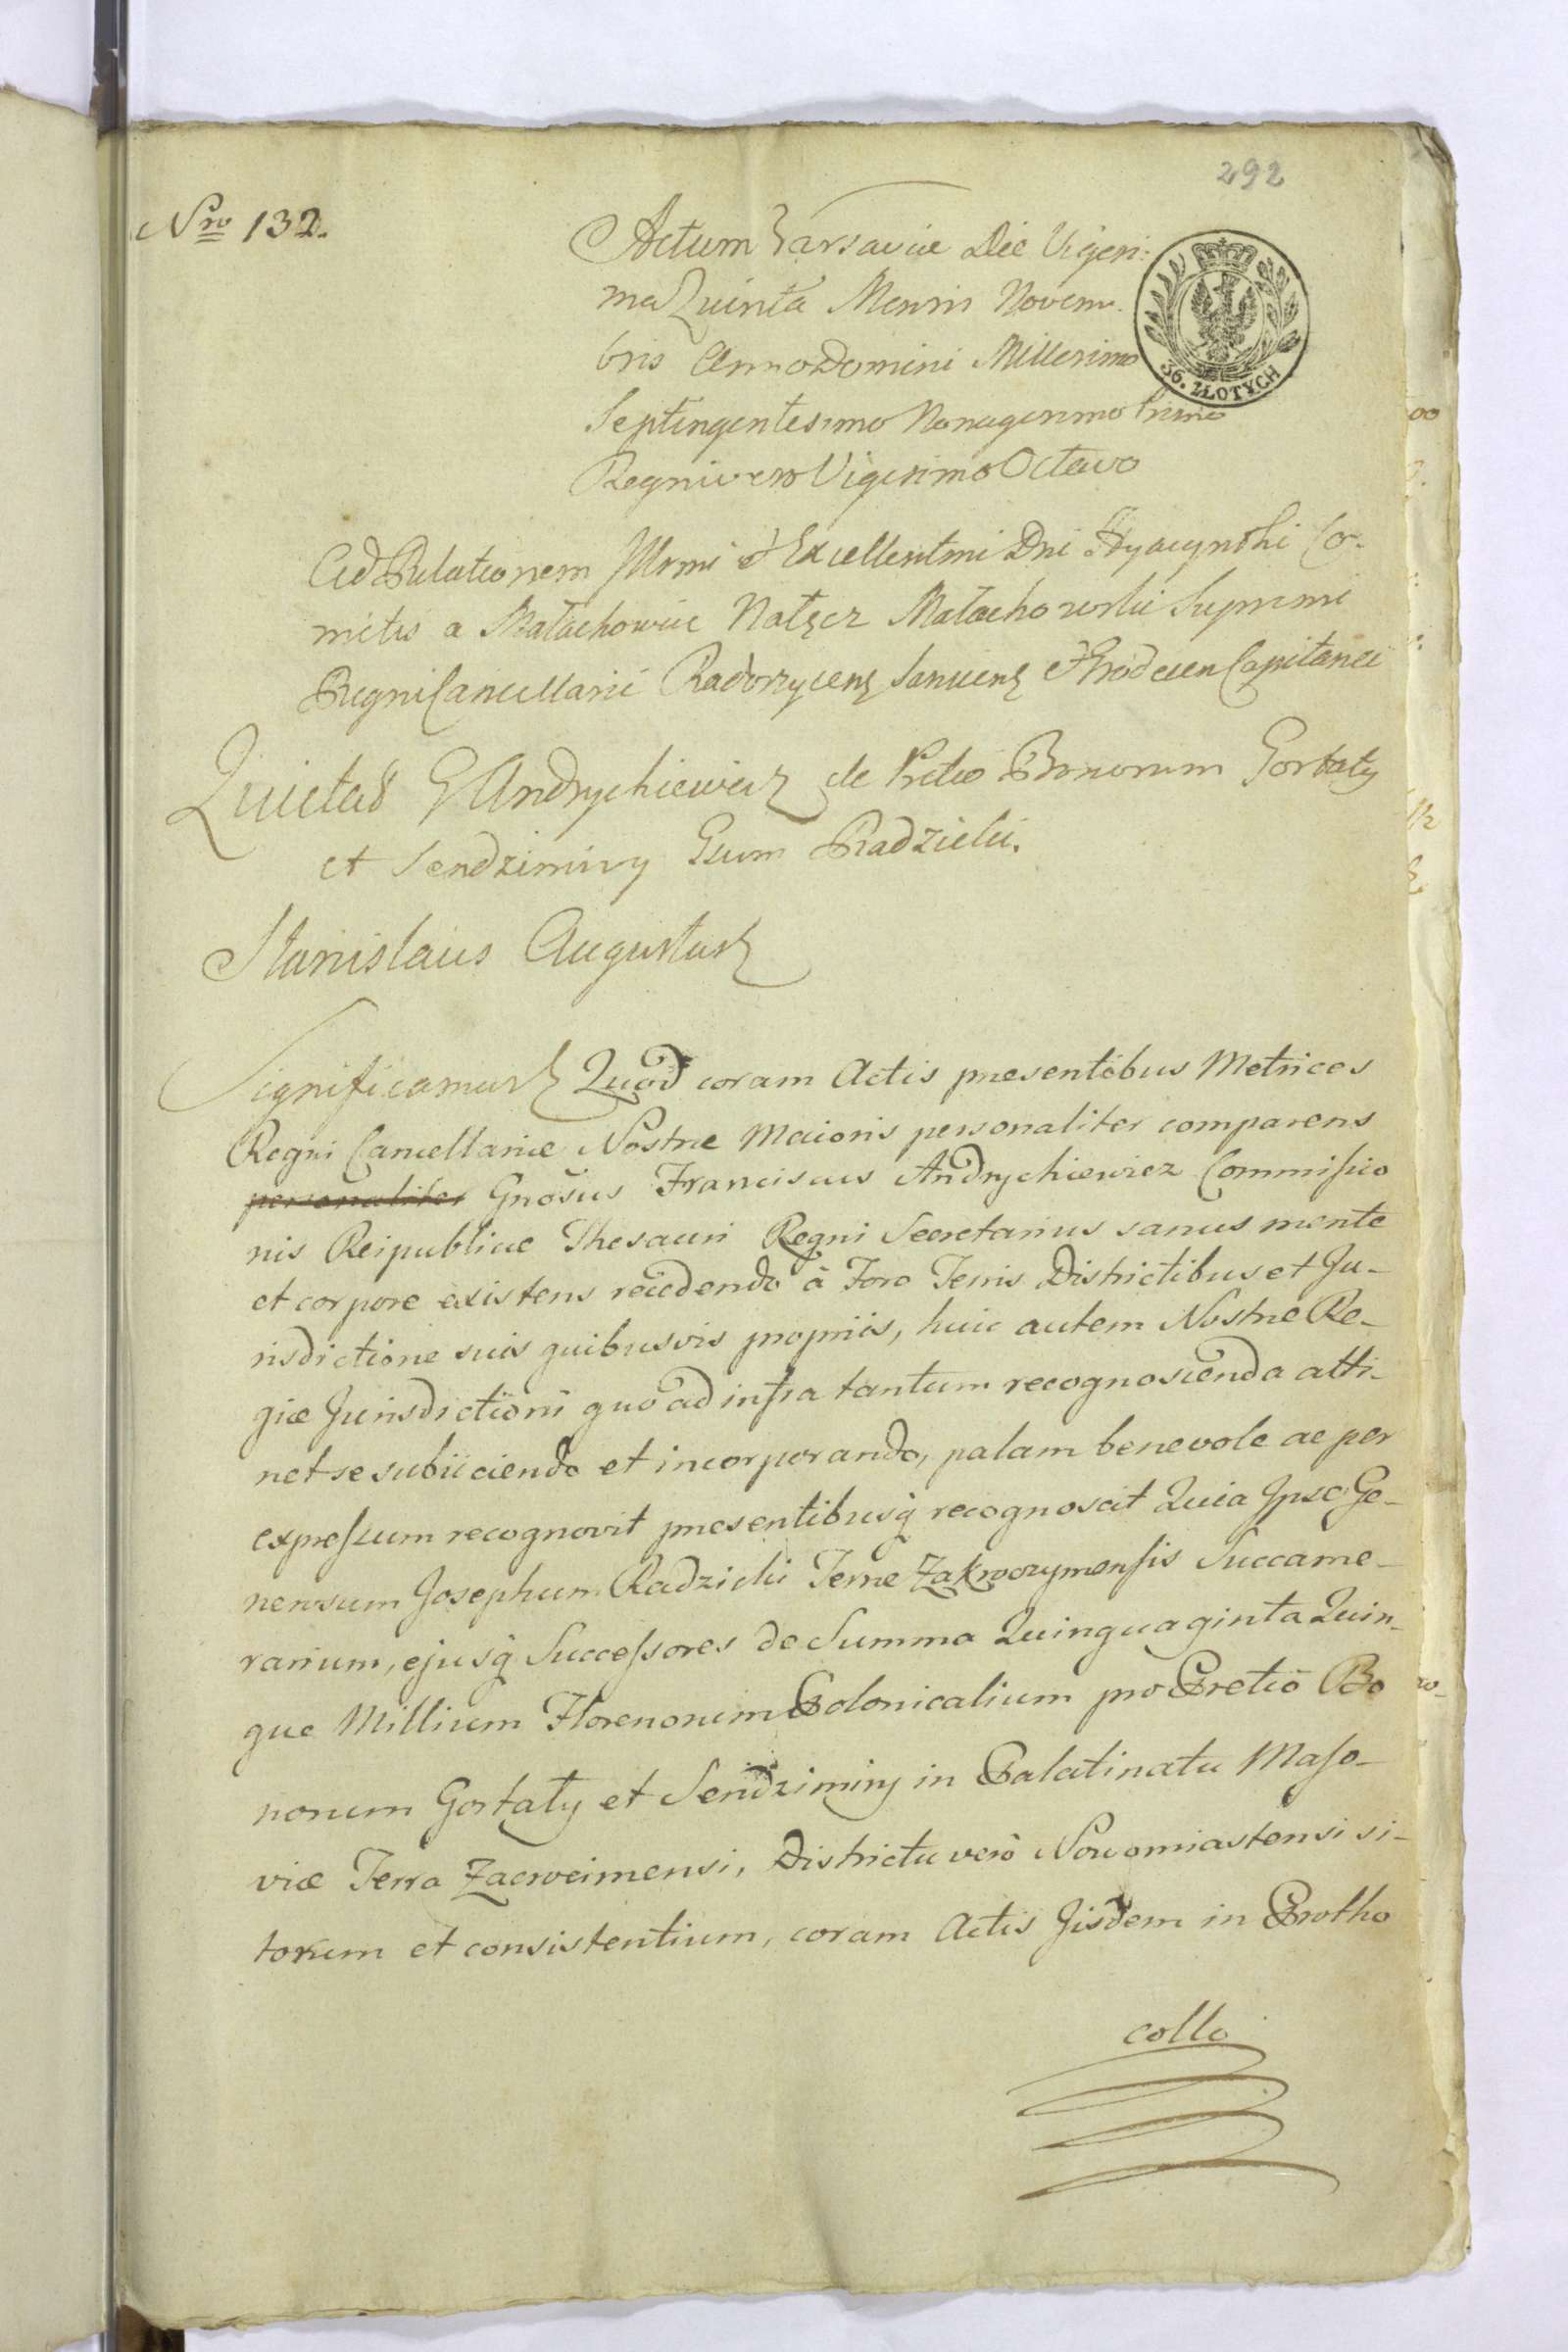 292
Nro 132.
Actum Varsaviæ Die Vigesi:
ma Quinta Mensis Novem:
bris Anno Domini Millesimo
36. ZŁOTYCH
Septingentesimo Nonagesimo Primo
Regni vero Vigesimo Octavo
Ad Relationem Illrmi & Excellentmi Dni Hyacynthi Co-
mitis a Małachowice Nałęcz Małachowski Supremi
Regni Cancellarii Radoszycens Sanncens & Grodecen Capitanei
Quietaō G Andrychiewicz de Pretio Bonorum Gortaty
et Sendzimiry Gsum Radzicki.
Stanislaus Augustus
Significamus Quod coram Actis præsentibus Metrices
Regni Cancellariæ Nostræ Maioris personaliter comparens
personaliter Gnōsus Franciscus Andrychiewicz Commissio
nis Reipublicæ Thesauri Regni Secretarius sanus mente
et corpore existens recedendo à Foro Terris Districtibus et Ju-
risdictione suis quibusvis propriis, huic autem Nostræ Re-
giæ Jurisdictioni quo ad infra tantum recognoscenda atti-
net se subiiciendo et incorporando, palam benevole ac per
expressum recognovit præsentibusq recognoscit Quia Ipse Ge-
nerosum Josephum Radzicki Terræ Zakroczymensis Succame-
rarium, ejusq Successores de Summa Quinquaginta Quin-
que Millium Florenorum Polonicalium pro Pretio Bo
norum Gortaty et Sendzimiry in Palatinatu Maso-
viæ Terra Zacroeimensi, Districtu verò Nowomiastensi si-
torum et consistentium, coram Actis Iisdem in Protho
colło